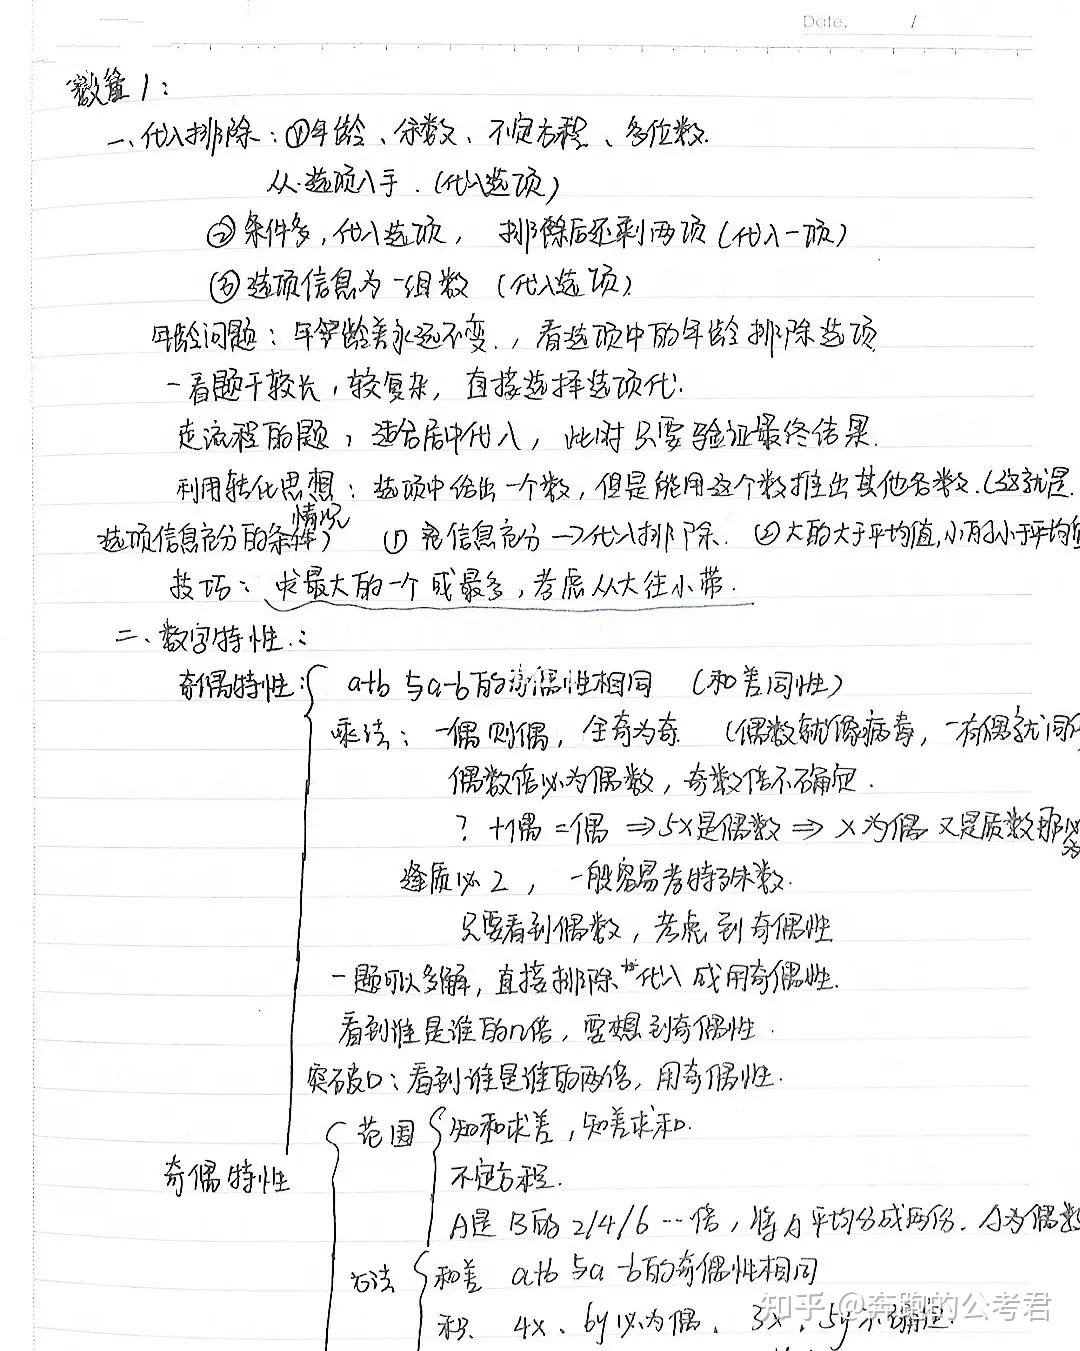 Date. /
数量1：
一、代入排除：①年龄、余数、不定方程、多位数.
从选项入手.（代入选项）
②条件多，代入选项，排除后还剩两项（代入一项）
③选项信息为一组数（代入选项）
年龄问题：年龄差永远不变.，看选项中的年龄排除选项
一看题干较长，较复杂，直接选择选项代.
走流程的题，适合居中代入，此时只要验证最终结果.
利用转化思想：选项中给出一个数，但是能用这个数推出其他各数.（这就是.
选项信息充分的情况） ① 信息充分→代入排除. ②大的大于平均值,小的小于平均值
技巧：求最大的一个或最多，考虑从大往小带.
二、数字特性.：
奇偶特性： a+b与a-b的奇偶性相同 （和差同性）
乘法：一偶则偶，全奇为奇.（偶数就像病毒，一有偶就同化
偶数倍必为偶数，奇数倍不确定.
？+偶=偶 ⇒5X是偶数⇒ X为偶 又是质数那必为
逢质必2，一般容易考特殊数.
只要看到偶数，考虑到奇偶性
一题可以多解，直接排除代入或用奇偶性.
看到谁是谁的n倍，要想到奇偶性.
突破口：看到谁是谁的两倍，用奇偶性.
范围 知和求差，知差求和.
奇偶特性
不定方程.
A是B的2/4/6…倍，将A平均分成两份.A为偶数
方法 和差 a+b与a-b的奇偶性相同
积. 4x、6y必为偶、3x、5y不确定.
知乎 @奔跑的公考君